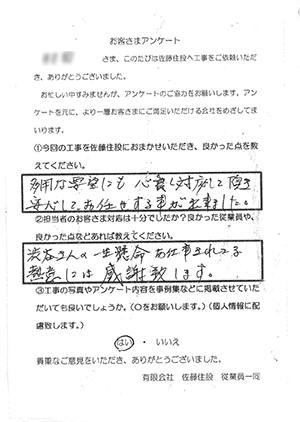 お客さまアンケート
さま、このたびは佐藤住設へ工事をご依頼いただ
き、ありがとうございました。
お忙しい中すみませんが、アンケートのご協力をお願いします。アン
ケートを元に、より一層お客さまにご満足いただける会社をめざしてま
いります。
①今回の工事を佐藤住設におまかせいただき、良かった点を教
えてください。
多用な要望にも心良く対応して頂き
安心してお任せする事が出来ました。
②担当者のお客さま対応は十分でしたか?良かった従業員や、
良かった点などあれば教えてください。
渋谷さんの一生懸命お仕事されてる
熱意には感謝致します。
③工事の写真やアンケート内容を事例集などに掲載させていた
だいても良いでしょうか。(〇をお願いします。)(個人情報に配
慮致します。)
はい ・ いいえ
貴重なご意見をいただき、ありがとうございました。
有限会社 佐藤住設 従業員一同